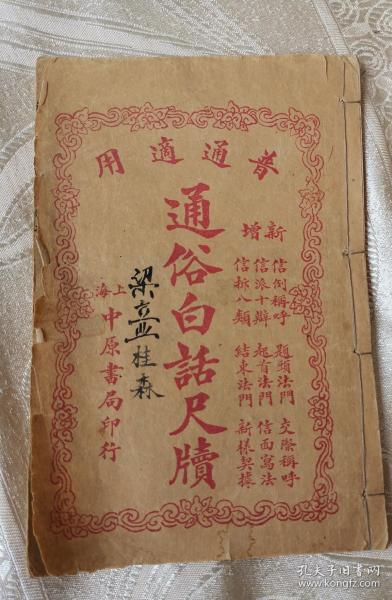 普通適用
新增
信倒稱呼 題頭法門 交際稱呼
信派十辦 起首法門 信面寫法
信拆八類 結束法門 新樣契據
通俗白話尺牘
桂森
上海中原書局印行
孔夫子旧书网
www.kongfz.com